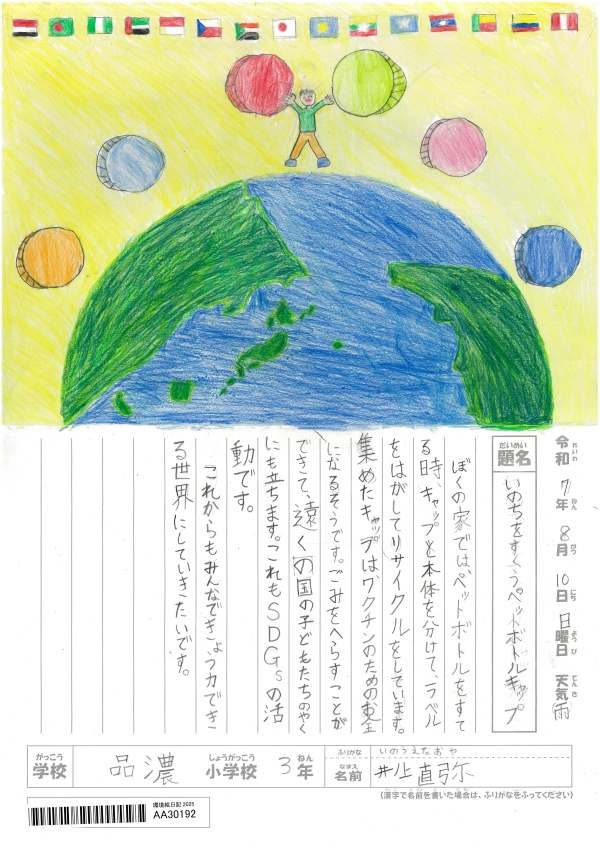 令和7年8月10日日曜日 天気雨
れいわ ねん がつ にち ようび てんき
だいめい
題名 いのちをすくうペットボトルキャップ
ぼくの家ではペットボトルをすて
る時、キャップと本体を分けて、ラベル
をはがしてリサイクルをしています。
集めたキャップはワクチンのためのお金
になるそうです。ごみをへらすことが
できて、遠くの国の子どもたちのやく
にも立ちます。これもSDGsの活
動です。
これからもみんなできょう力でき
る世界にしていきたいです。
がっこう しょうがっこう ねん
学校 品濃 小学校 3年
ふりがな いのうえなおや
なまえ
名前 井上直弥
(漢字で名前を書いた場合は、ふりがなをふってください)
環境絵日記 2025
AA30192